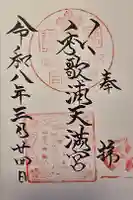 奉拝
和歌浦天満宮
令和八年三月廿四日